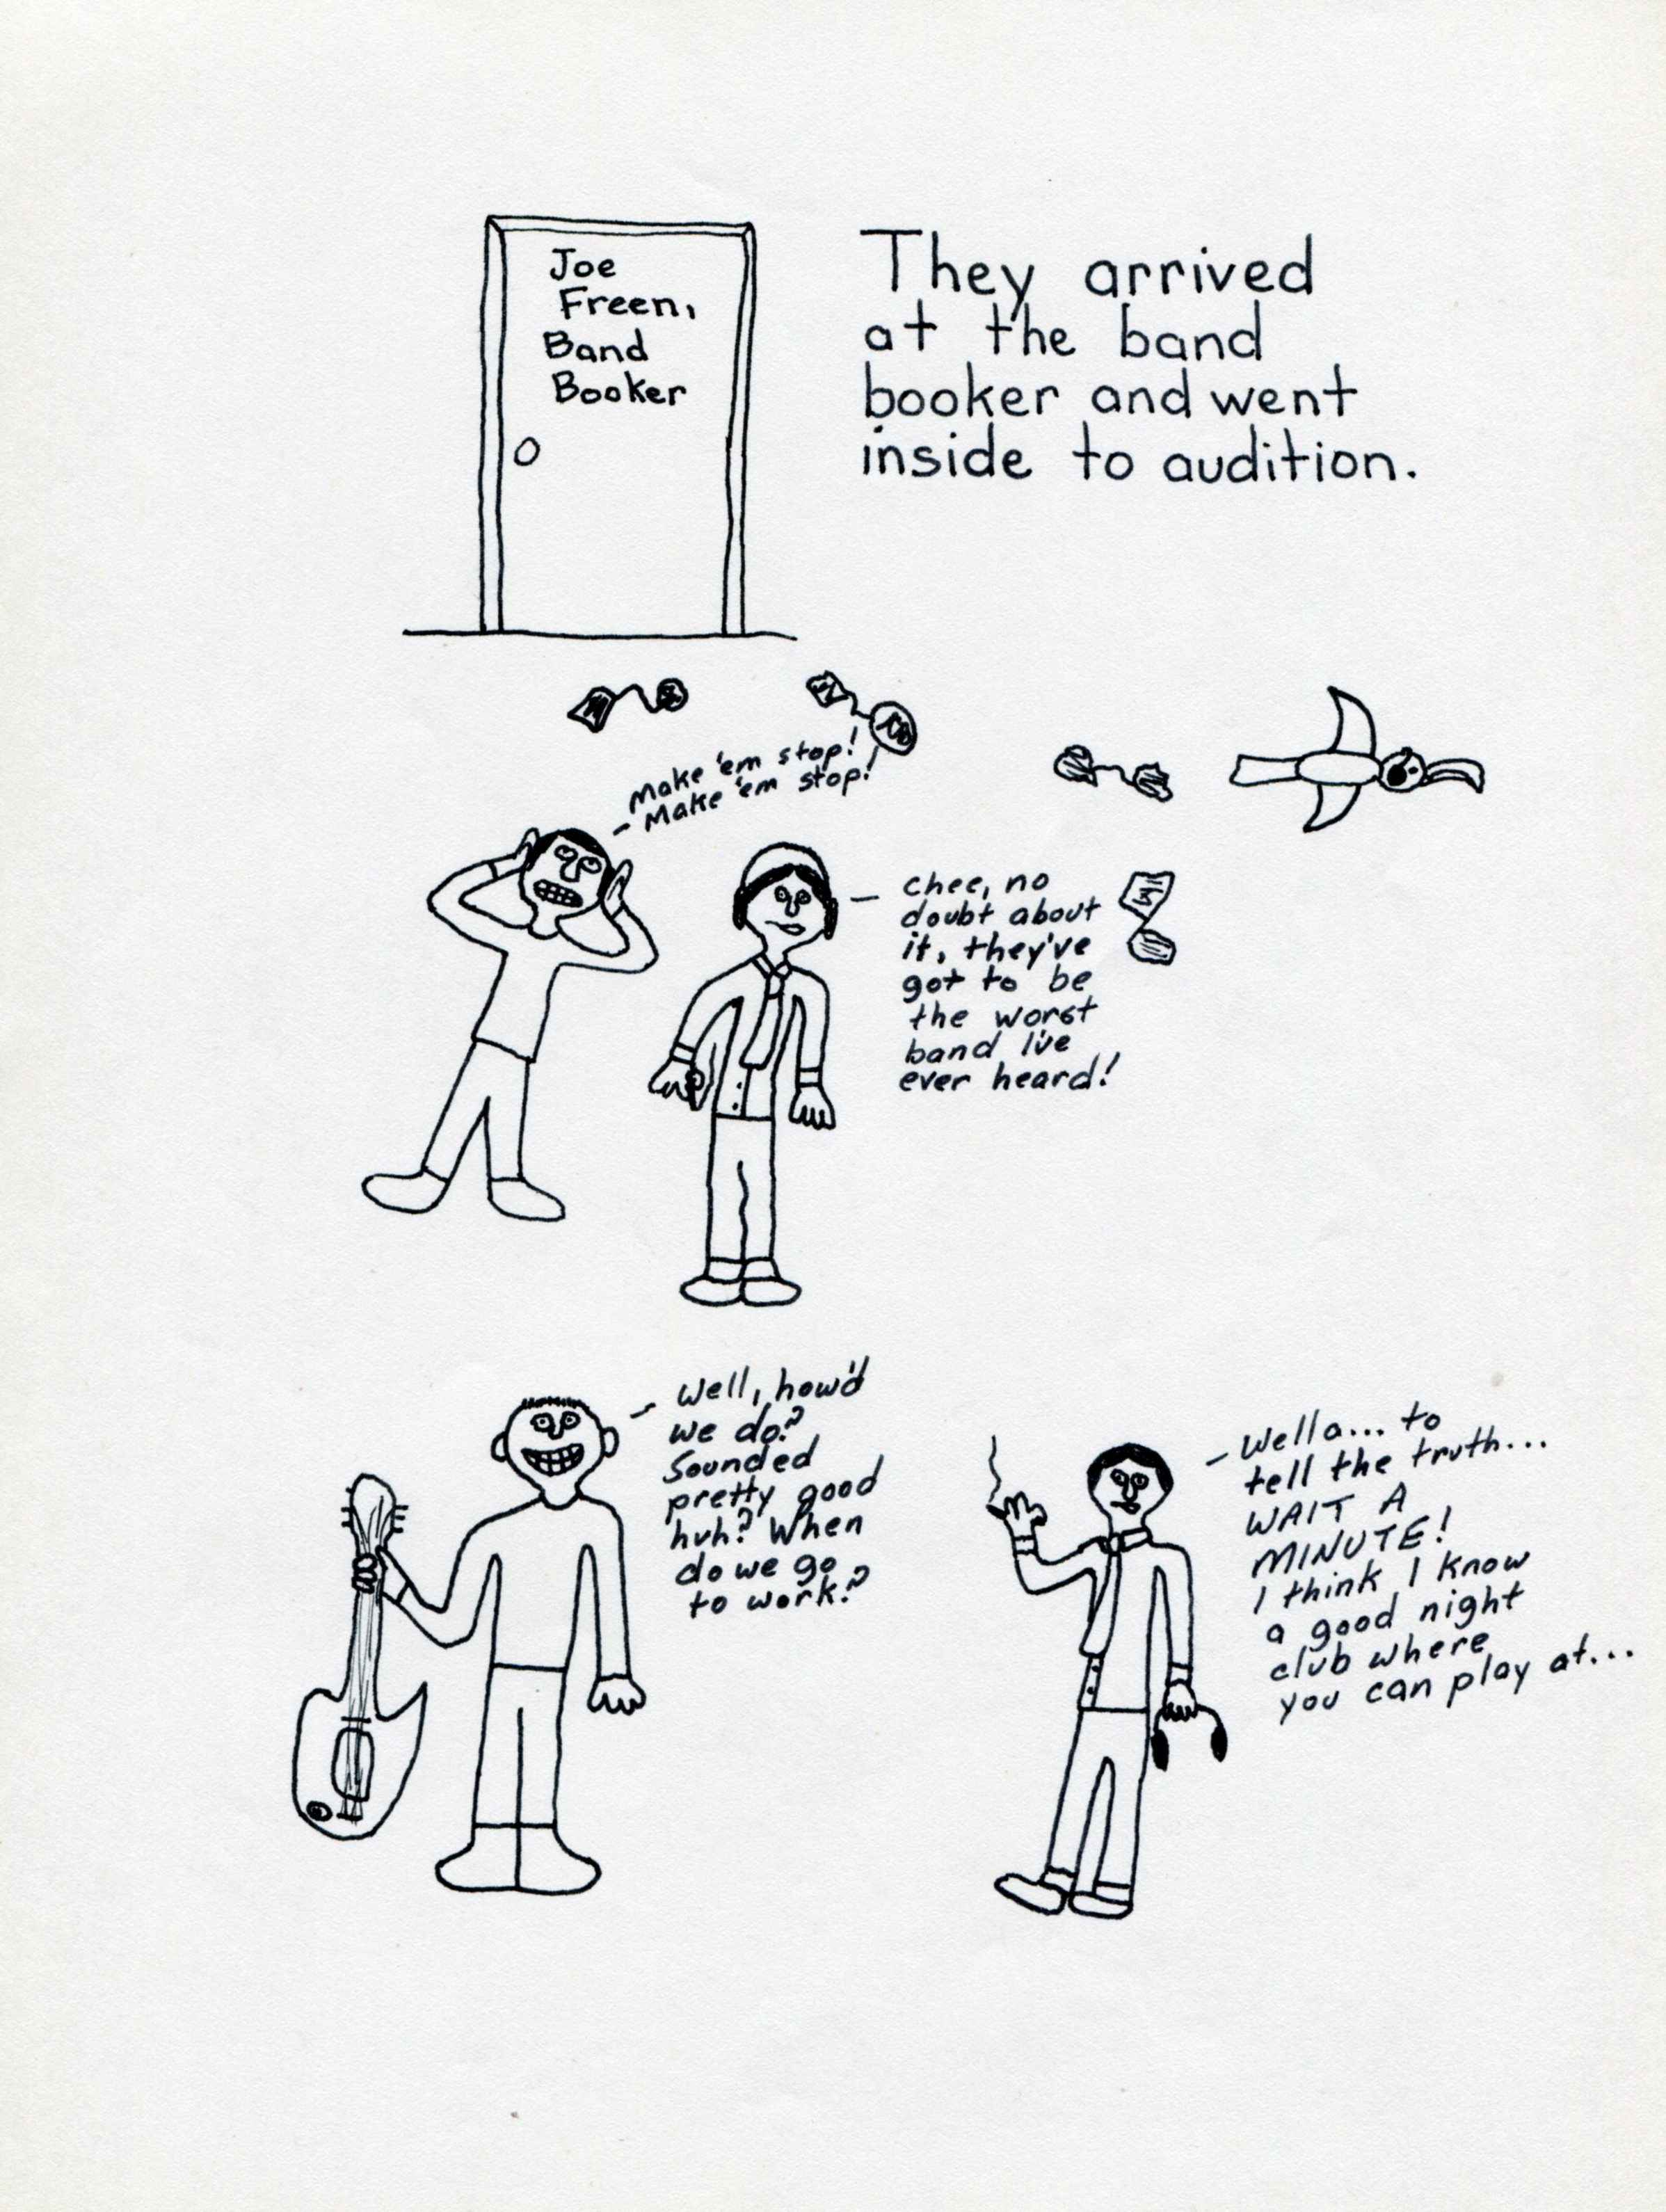 Joe
Freen,
Band
Booker
They arrived
at the band
booker and went
inside to audition.
Make 'em stop!
Make 'em stop!
Chee, no
doubt about
it, they've
got to be
the worst
band I've
ever heard!
Well, how'd
we do?
Sounded
pretty good
huh? When
do we go
to work?
Well a... to
tell the truth...
WAIT A
MINUTE!
I think I know
a good night
club where
you can play at...